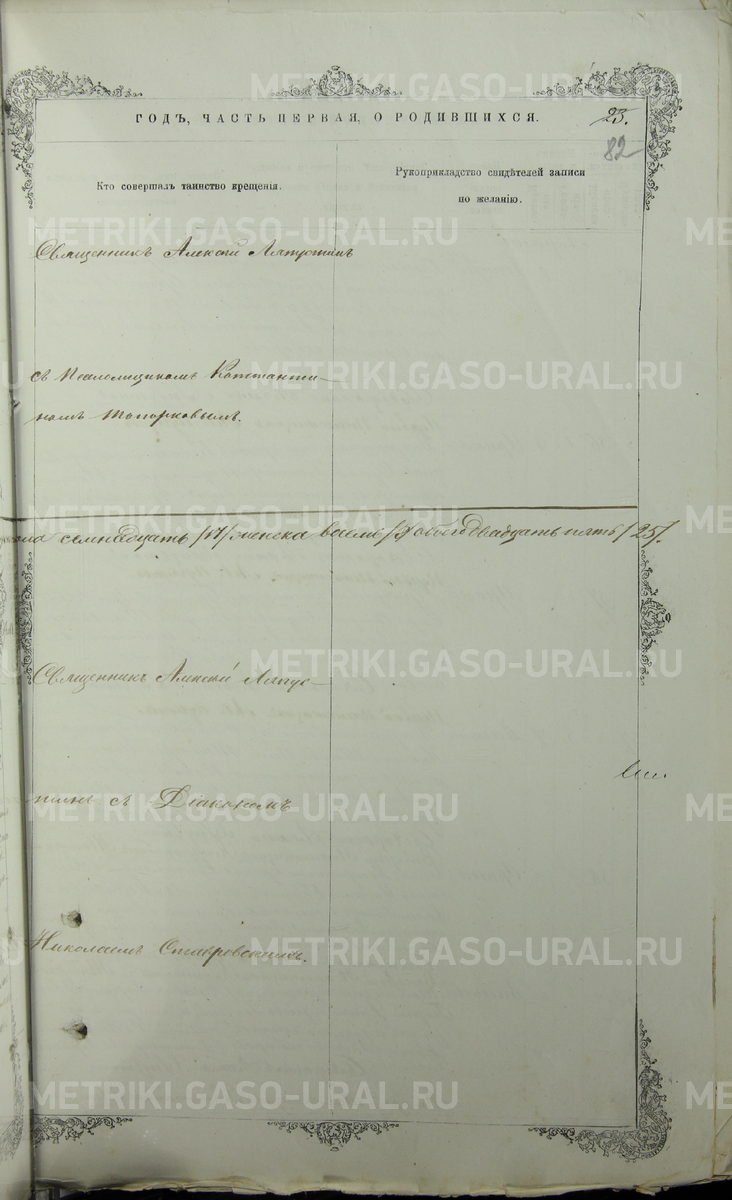 ГОДЪ, ЧАСТЬ ПЕРВАЯ, О РОДИВШИХСЯ.
23.
82
Кто совершалъ таинство крещенія.
Рукоприкладство свидѣтелей записи
по желанію.
METRIKI.GASO-URAL.RU
Священникъ Алексій Ляпустинъ
съ Псаломщикомъ Константи-
номъ Топорковымъ.
семнадцать /17/ женска восемь /8/ обоего двадцать пять /25/.
Священникъ Алексій Ляпус-
тинъ съ Діакономъ
Николаемъ Ставровскимъ.